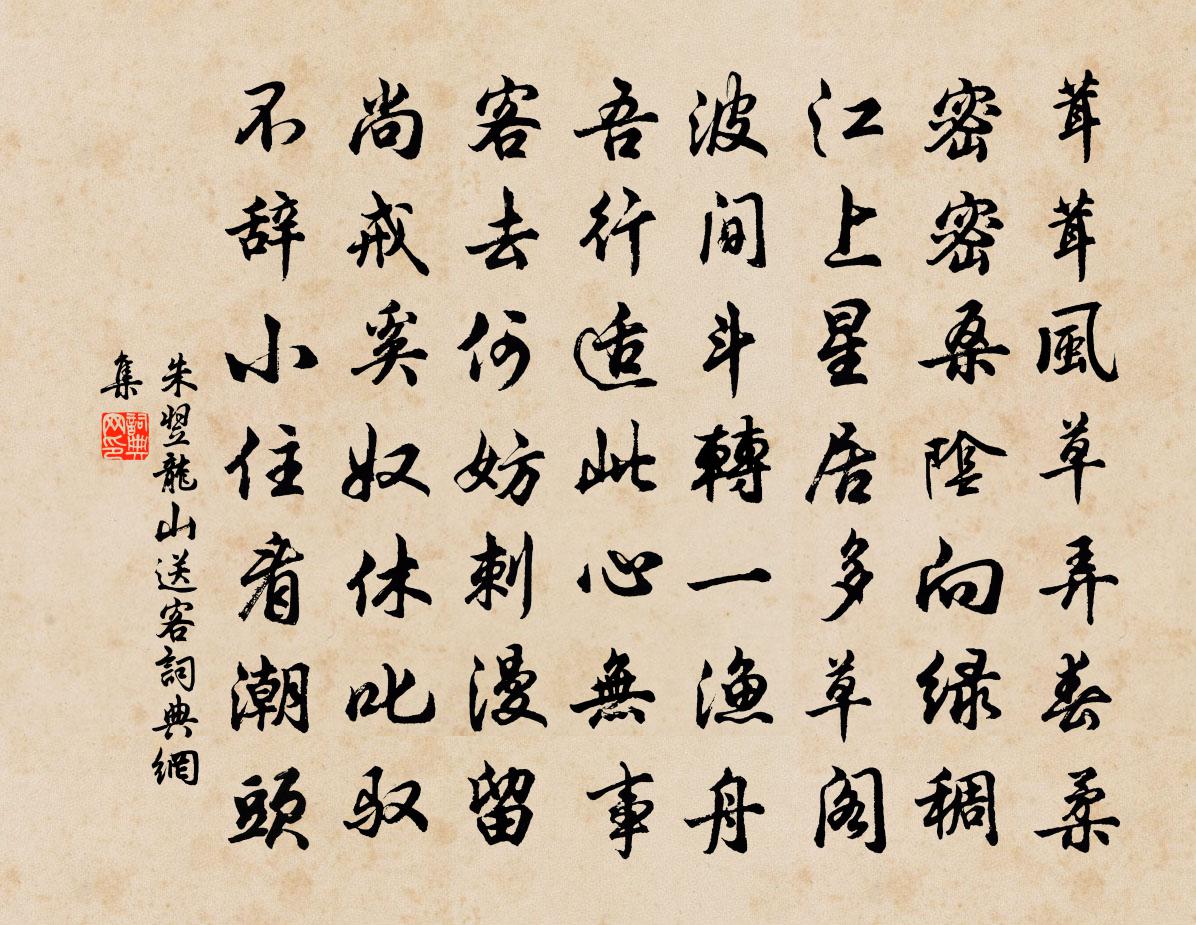 茸茸風草弄春柔
密密桑陰向緑稠
江上星居多草閣
波间斗轉一漁舟
吾行适此心無事
客去何妨刺漫留
尚戒奚奴休叱驭
不辞小住看潮頭
朱翌龍山送客詞典網
集
詞典网印